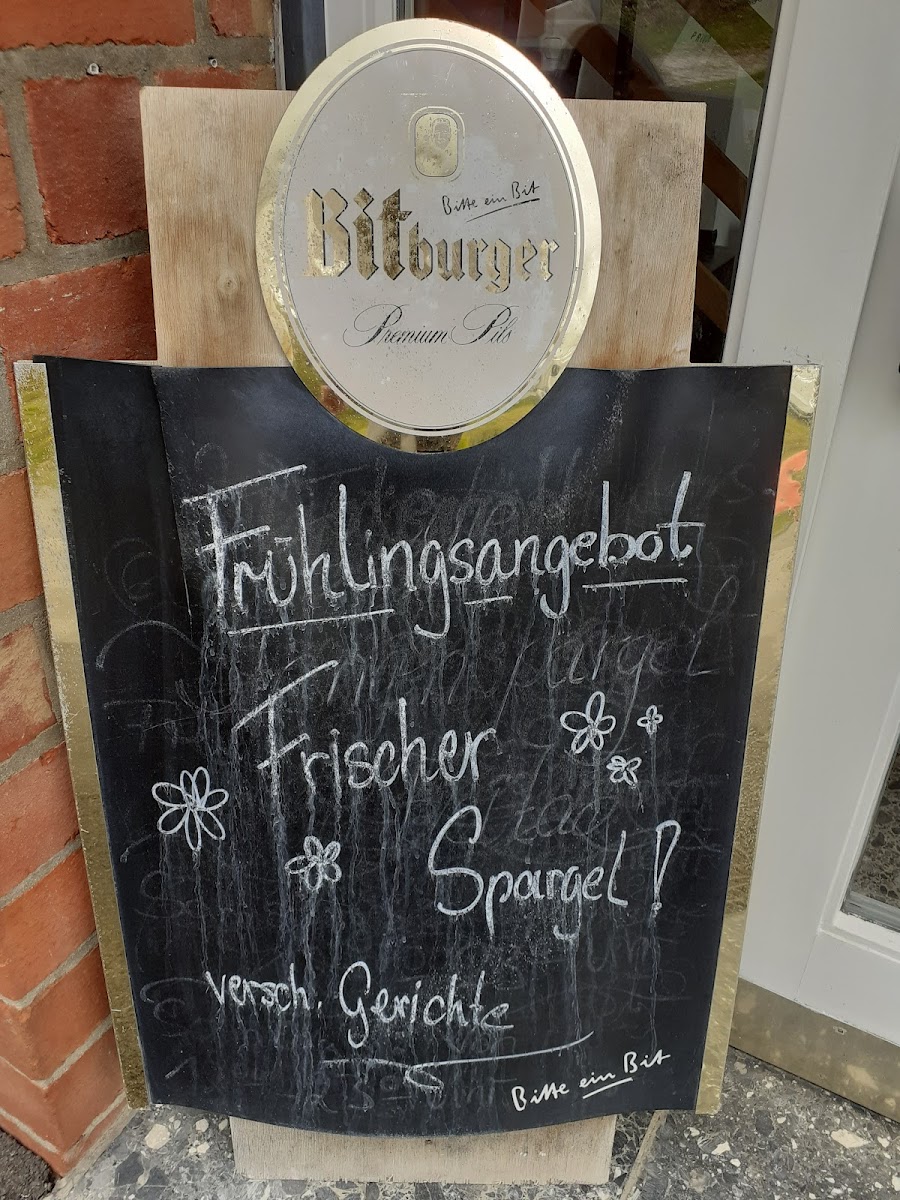 Bitte ein Bit
Bitburger
Premium Pils
Frühlingsangebot
Frischer
Spargel!
versch. Gerichte
Bitte ein Bit